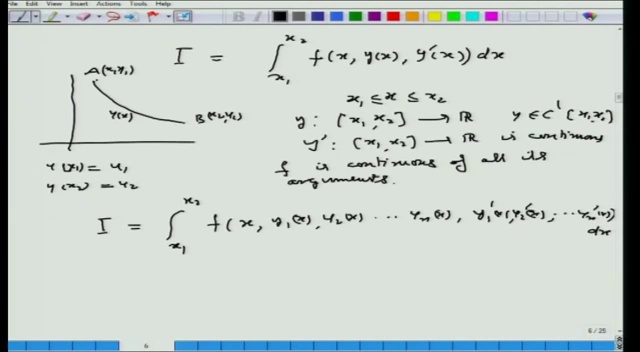 File View Insert Actions Tools Help
I = ∫_{x₁}^{x₂} f(x, y(x), y'(x)) dx
A(x₁,y₁)
y(x)
B(x₂,y₂)
x₁ ≤ x ≤ x₂
y: [x₁, x₂] → ℝ y ∈ C' [x₁,x₂]
y': [x₁, x₂] → ℝ is continuous
f is continuous of all its
arguments.
y(x₁) = y₁
y(x₂) = y₂
I = ∫_{x₁}^{x₂} f(x, y₁(x), y₂(x) ... yₙ(x), y₁'(x), y₂'(x), ... yₙ'(x))
dx
6 / 25
6